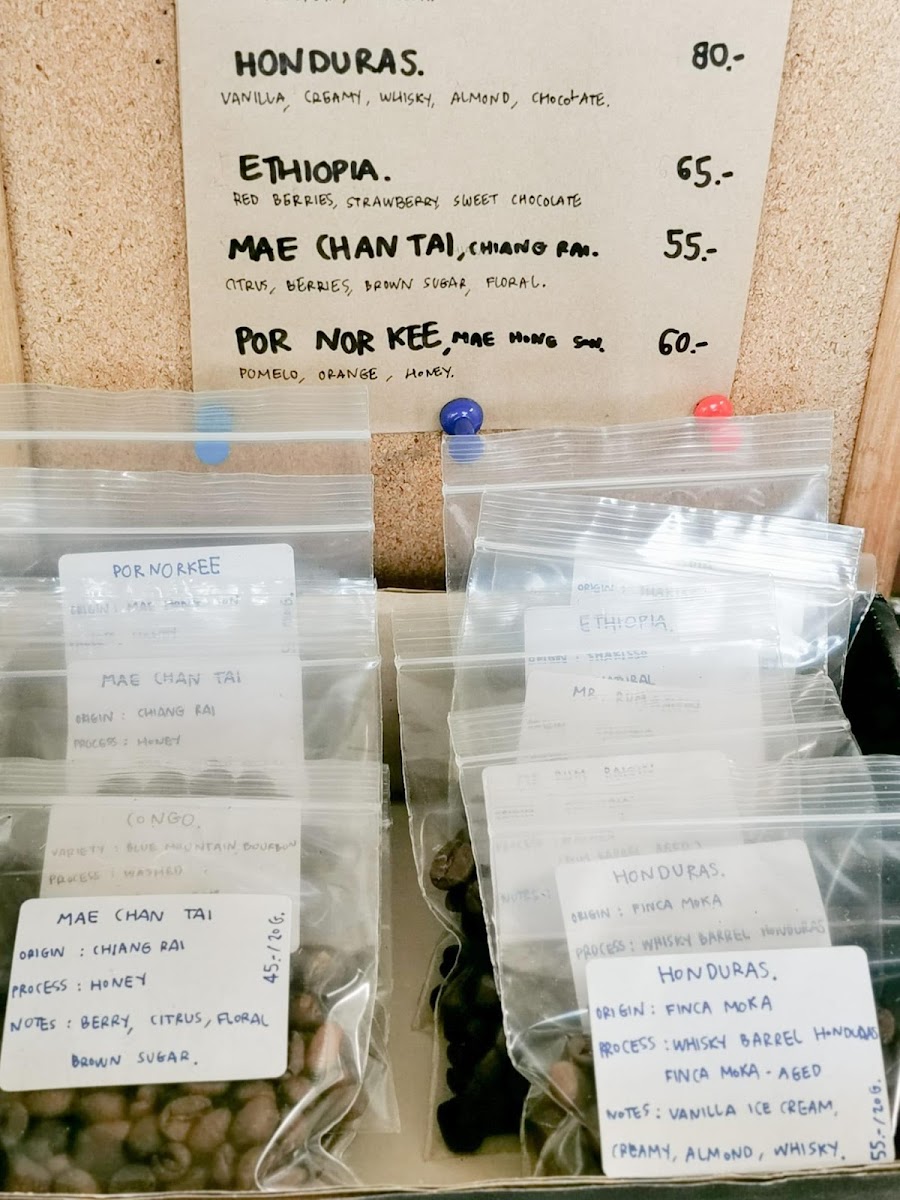 HONDURAS. 80.-
VANILLA, CREAMY, WHISKY, ALMOND, CHOCOLATE.
ETHIOPIA. 65.-
RED BERRIES, STRAWBERRY, SWEET CHOCOLATE
MAE CHAN TAI, CHIANG RAI. 55.-
CITRUS, BERRIES, BROWN SUGAR, FLORAL.
POR NOR KEE, MAE HONG SON. 60.-
POMELO, ORANGE, HONEY.
POR NOR KEE
ORIGIN : MAE HONG SON
MAE CHAN TAI
ORIGIN : CHIANG RAI
PROCESS : HONEY
CONGO.
VARIETY : BLUE MOUNTAIN, BOURBON
PROCESS : WASHED
MAE CHAN TAI
ORIGIN : CHIANG RAI
PROCESS : HONEY
NOTES : BERRY, CITRUS, FLORAL
BROWN SUGAR.
45.-/20G.
ORIGIN :
ETHIOPIA.
ORIGIN : SHAKISSO
MR. RUM
MR RUM RAISIN
NOTES :
HONDURAS.
ORIGIN : FINCA MOKA
PROCESS : WHISKY BARREL HONDURAS
HONDURAS.
ORIGIN : FINCA MOKA
PROCESS : WHISKY BARREL HONDURAS
FINCA MOKA - AGED
NOTES : VANILLA ICE CREAM,
CREAMY, ALMOND, WHISKY.
55.-/20G.